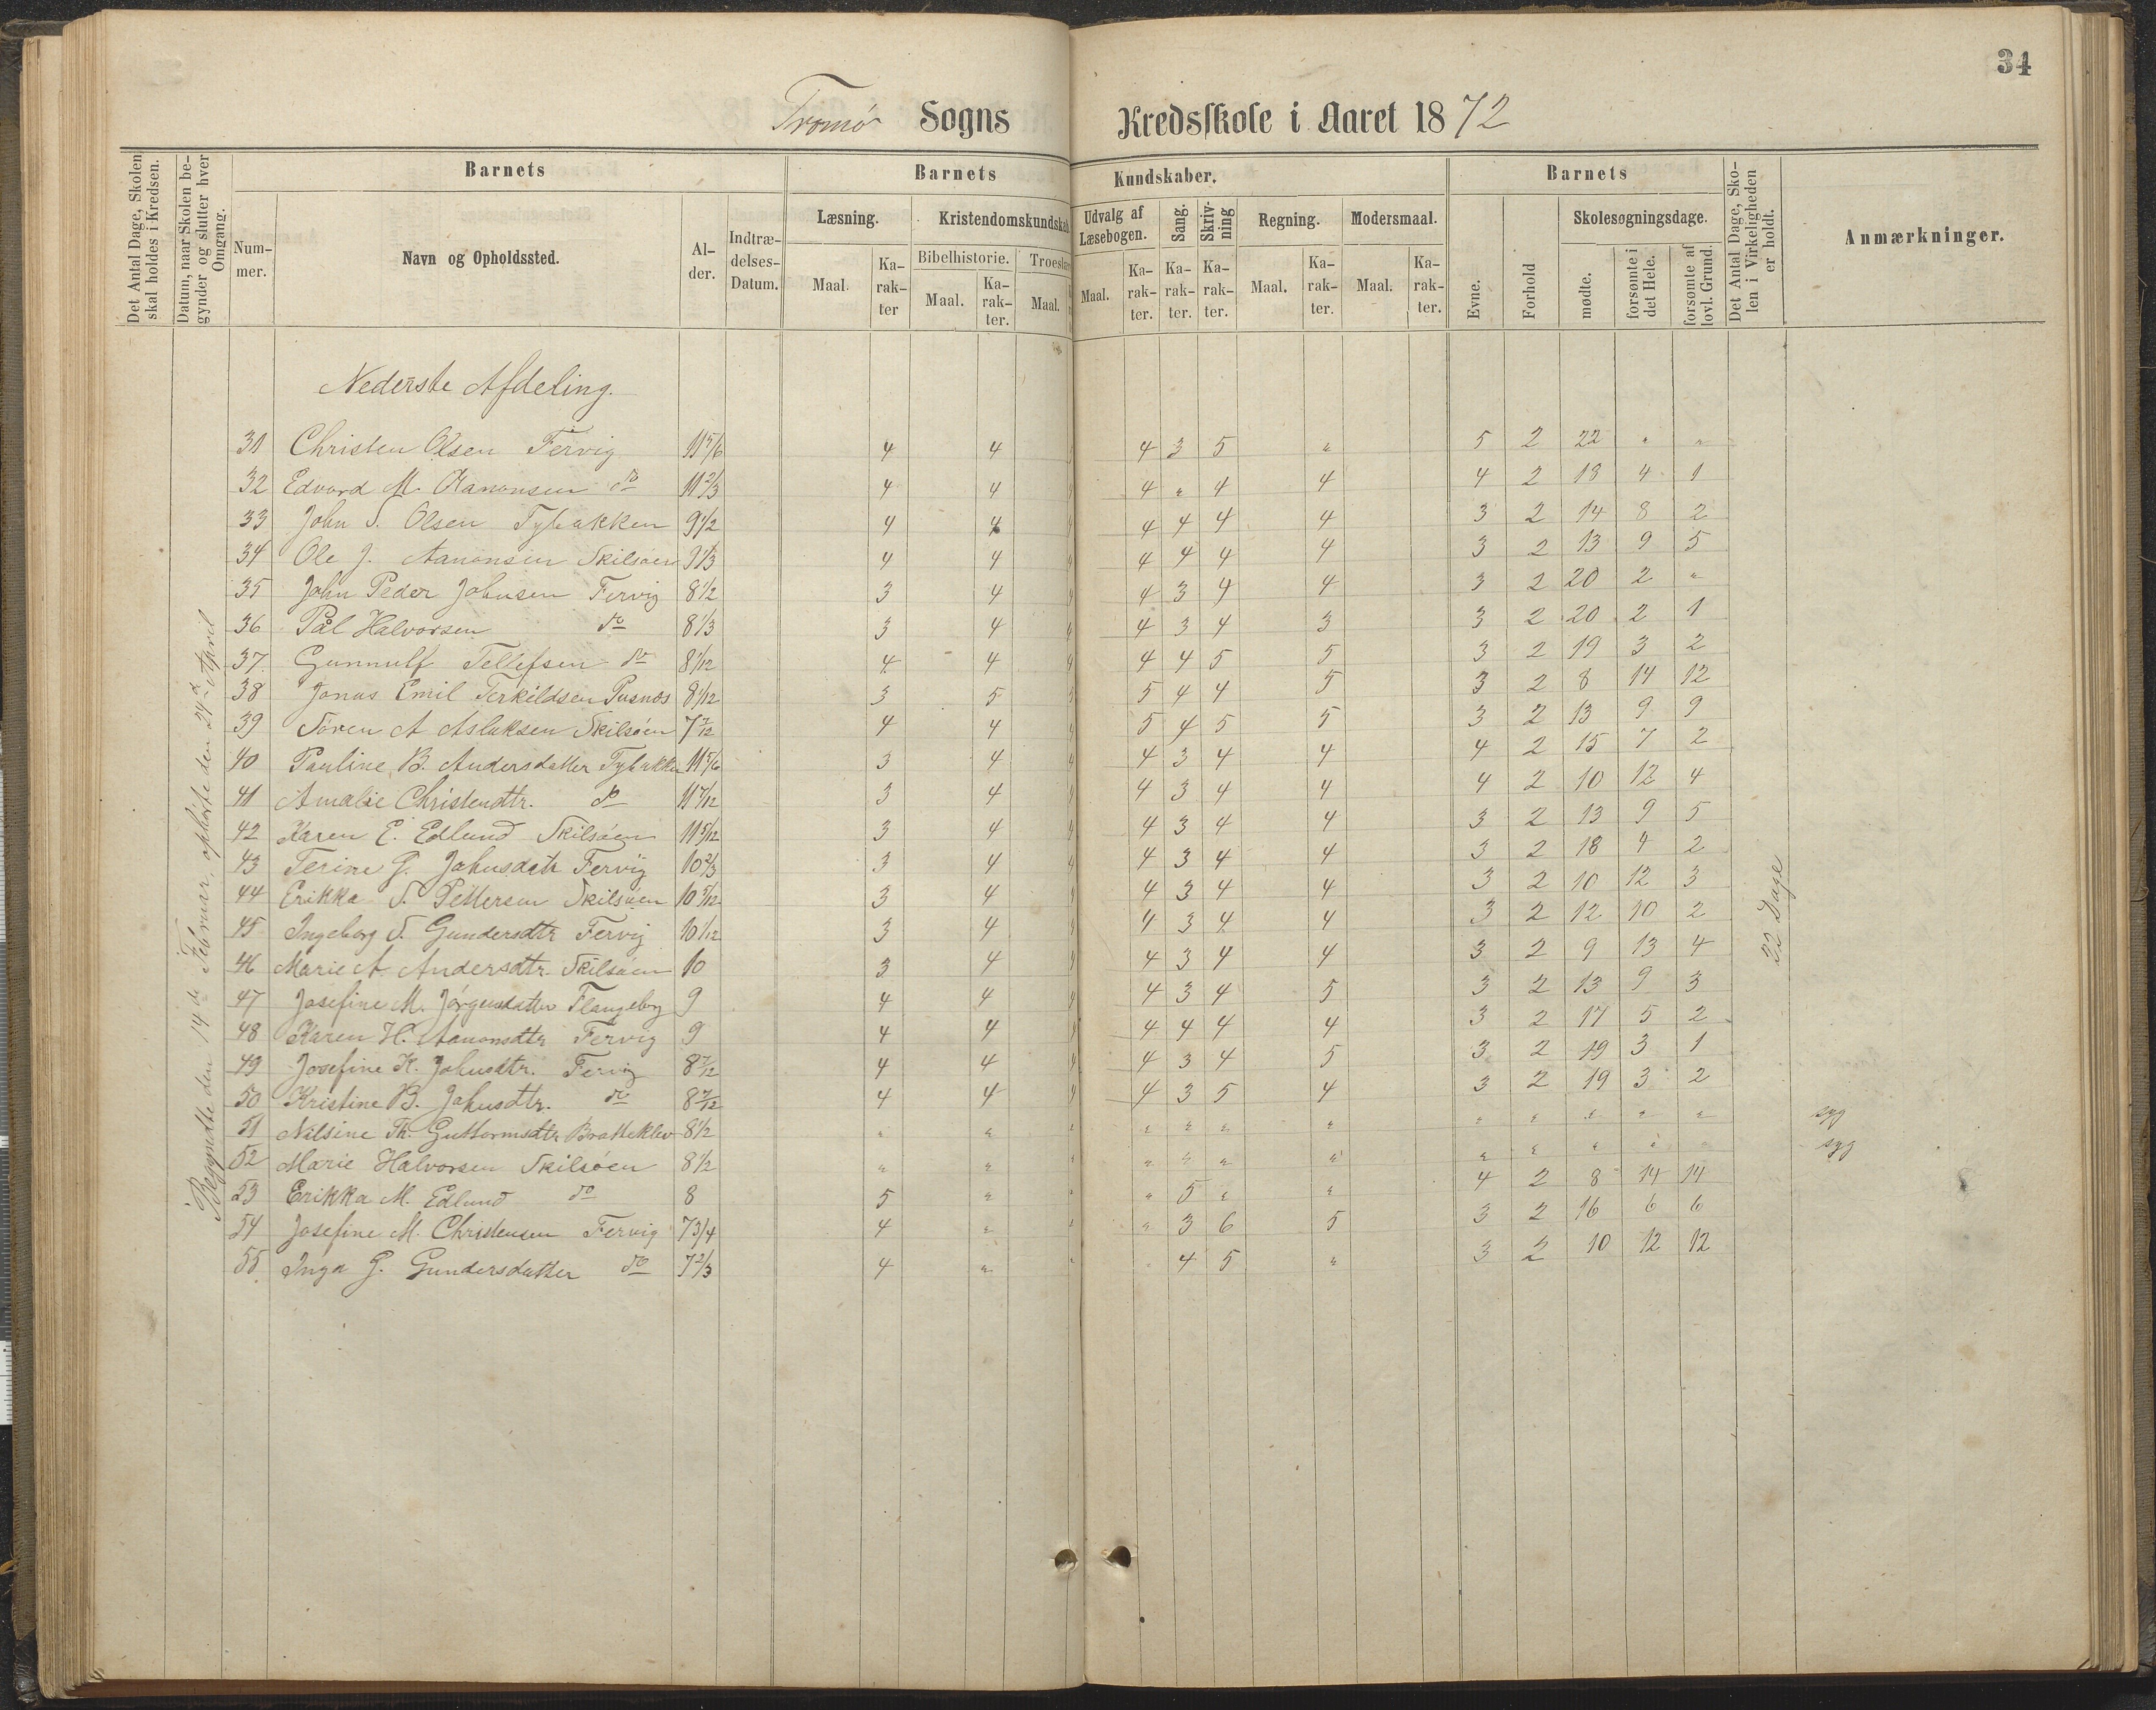 34
Tromø Sogns Kredsskole i Aaret 1872
Det Antal Dage, Skolen skal holdes i Kredsen.
Datum, naar Skolen begynder og slutter hver Omgang.
Barnets
Nummer.
Navn og Opholdssted.
Alder.
Indtrædelses-Datum.
Barnets Kundskaber.
Læsning.
Maal.
Karakter
Kristendomskundskab
Bibelhistorie.
Maal.
Karakter.
Troeslære
Maal.
Udvalg af Læsebogen.
Maal.
Karakter.
Sang.
Karakter.
Skrivning
Karakter.
Regning.
Maal.
Karakter.
Modersmaal.
Maal.
Karakter.
Barnets
Evne.
Forhold
Skolesøgningsdage.
mødte.
forsømte i det Hele.
forsømte af lovl. Grund.
Det Antal Dage, Skolen i Virkeligheden er holdt.
Anmærkninger.
Begyndte den 14de Februar, ophørte den 24de April
22 Dage
Nederste Afdeling.
31 Christen Olsen Fervig 11 5/6 4 4 4 3 5 " 5 2 22 " "
32 Edvard M. Aanonsen do 11 2/3 4 4 4 4 " 4 4 4 2 18 4 1
33 John S. Olsen Tybakken 9 1/2 4 4 4 4 4 4 4 3 2 14 8 2
34 Ole J. Aanonsen Skilsøen 9 1/3 4 4 4 4 4 4 4 3 2 13 9 5
35 John Peder Johnsen Fervig 8 1/2 3 4 4 4 3 4 4 3 2 20 2 "
36 Pål Halvorsen do 8 1/3 3 4 4 4 3 4 3 3 2 20 2 1
37. Gunnulf Tellefsen do 8 1/12 4 4 4 4 4 5 5 3 2 19 3 2
38 Jonas Emil Terkildsen Pusnæs 8 1/12 3 5 5 4 4 5 3 2 8 14 12
39 Søren A Aslaksen Skilsøen 7 7/12 4 4 4 5 4 5 5 3 2 13 9 9
40 Pauline B. Andersdatter Tybakken 11 5/6 3 4 4 4 3 4 4 4 2 15 7 2
41 Amalie Christendtr. do 11 7/12 3 4 4 4 3 4 4 4 2 10 12 4
42 Karen E. Edlund Skilsøen 11 5/12 3 4 4 4 3 4 4 3 2 13 9 5
43 Terine G. Johnsdatr Fervig 10 2/3 3 4 4 4 3 4 4 3 2 18 4 2
44 Erikka S. Pettersen Skilsøen 10 5/12 3 4 4 4 3 4 4 3 2 10 12 3
45 Ingeborg S. Gundersdtr Fervig 10 1/12 3 4 4 4 3 4 4 3 2 12 10 2
46 Marie A. Andersdtr. Skilsøen 10 3 4 4 4 3 4 4 3 2 9 13 4
47 Josefine M. Jørgensdatter Flangeborg 9 4 4 4 4 3 4 5 3 2 13 9 3
48 Karen H. Aanonsdtr Fervig 9 4 4 4 4 4 4 4 3 2 17 5 2
49 Josefine K. Johnsdtr. Fervig 8 7/12 4 4 4 4 3 4 5 3 2 19 3 1
50 Kristine B. Johnsdtr. do 8 7/12 4 4 4 4 3 5 4 3 2 19 3 2
51 Nilsine Th. Guttormsdtr Bratteklev 8 1/2 " " " " " " " " " " " " syg
52 Marie Halvorsen Skilsøen 8 1/2 " " " " " " " " " " " " syg
53 Erikka M. Edlund do 8 5 " " " 5 " " 4 2 8 14 14
54 Josefine M. Christensen Fervig 7 3/4 4 " " " 3 6 5 3 2 16 6 6
55 Inga G. Gundersdatter do 7 2/3 4 " " " 4 5 " 3 2 10 12 12